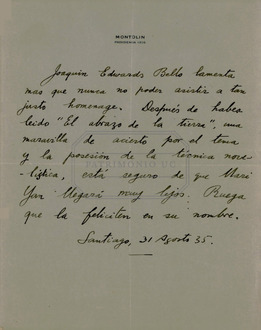 MONTOLIN
Joaquín Edwards Bello lamenta
mas que nunca no poder asistir a tan
justo homenage. Después de haber
leido "El abrazo de la tierra", una
maravilla de acierto por el tema
y la posesión de la técnica nove-
lística, está seguro de que Mari
Yan llegará muy lejos. Ruega
que la feliciten en su nombre.
Santiago, 31 Agosto 35.